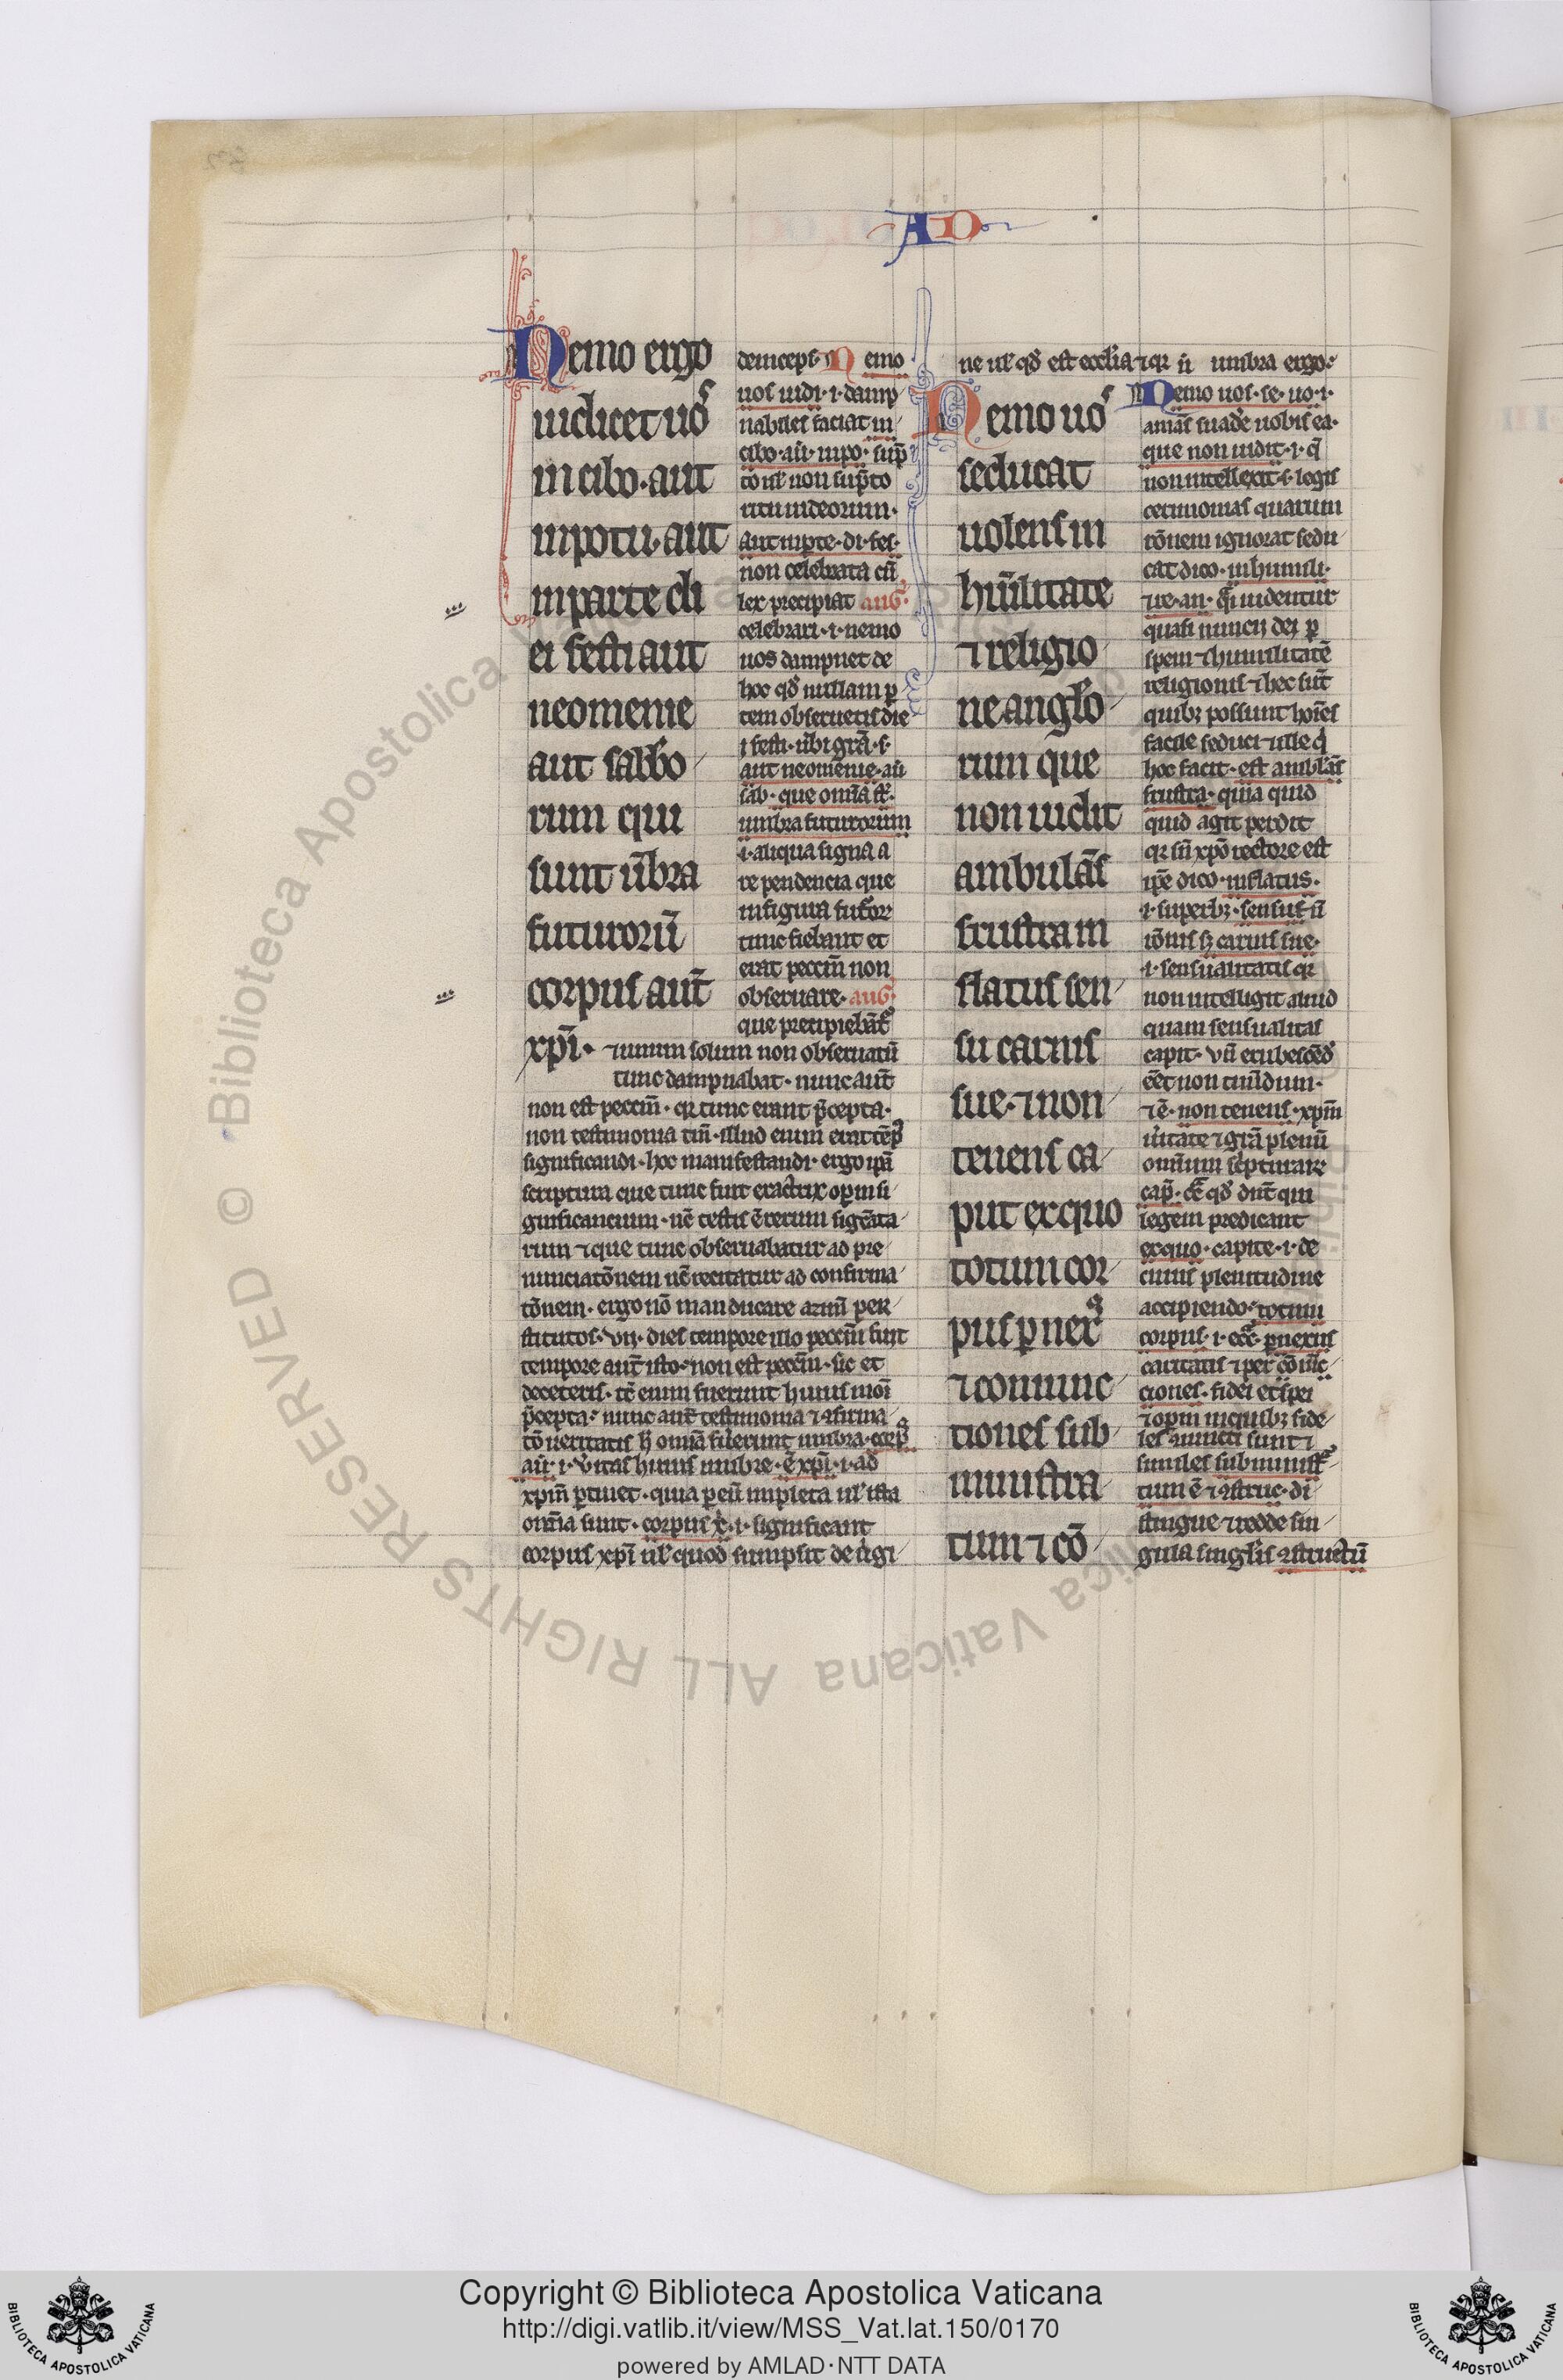 AD
Nemo ergo
iudicet uoˢ
in cibo· aut
in potu· aut
in parte di
ei festi aut
neomenie
aut sabbo
rum que
sunt ūbra
futurorū
corpus aut̄
xp̄i·
deinceps· Nemo
uos iudi· i· damp
nabiles faciat in
cibo· aū· in po· sūp
to ul̄ non sūpto
ritu iudeorum·
aut in p̄te· di· fes·
non celebrata cū
lex precipiat auḡ·
celebrari· i· nemo
uos dampnet de
hoc qd̄ nullam p
tem obseruetis die
i festi· ubi grā· s·
aut neomenie· aū
sab· que omīa st̄·
umbra futurorum
i· aliqua signa a
re pendencia que
in figura futor
tunc fiebant et
erat peccm̄ non
obseruare· auḡ
que precipiebāt
⁊ unum solum non obseruatū
tunc dampnabat· nunc aut̄
non est peccm̄· qr tunc erant p̄cepta·
non testimonia tm̄· illud enim erat tēp
significandi· hoc manifestandi· ergo ip̄a
scriptura que tunc fuit exactrix op̄m si
gnificancium· nc̄ testis ē rerum signata
rum ⁊ que tunc obseruabatur ad pre
nunciatōnem nc̄ recitatur ad confirma
tōnem· ergo nō manducare azim̄ per
stitutos· vii· dies tempore illo peccm̄ fuit
tempore aut̄ isto· non est peccm̄· sic et
de ceteris· tc̄ enim fuerunt huius mōi
p̄cepta· nunc aut̄ testimonia ⁊ ꝯfirma
tō ueritatis h̄ omīa fuerunt umbra· corpˢ
aū· i· ūitas huius umbre· ē xp̄i· i· ad
xpm̄ p̄tinet· quia p eū impleta ul̄ ista
omīa sunt· corpus x̄· i· significant
corpus xp̄i ul̄ quod sumpsit de uigi
ne ul̄ qd̄ est ecclīa ⁊ qr n̄ umbra ergo·
Nemo uoˢ
seducat
uolens in
hūilitate
⁊ religio
ne anglo
rum que
non uidit
ambulās
frustra in
flatus sen
su carnis
sue· ⁊ non
tenens ca
put ex quo
totum cor
pus p nexˢ
⁊ coniunc
tiones sub
ministra
tum ⁊ cō
Nemo uos· se· uo· i·
amās suadē uobis ea·
que non uidit· i· q̄
non intellexit· s· legis
cerimonias quarum
rōnem ignorat sedu
cat dico· in humili·
⁊ re· an· qui uidentur
quasi nuncij dei p
spem ⁊ humilitatē
religionis ⁊ hec sūt
quibꝫ possunt hoīes
facile seduci ⁊ ille q̄
hoc facit· est ambl̄ās
frustra· quia quid
quid agit perdit
qr sn̄ xpō rectore est
ip̄e dico· inflatus·
i· superbꝫ· sensus· n̄
rōnis sꝫ carnis sue·
i· sensualitatis qr
non intelligit aliud
quam sensualitas
capit· vn̄ erubescēd
eēt non timēdum·
⁊ ē· non tenens· xpm̄
ūitate ⁊ grā plenū
omnium scripturarꝫ
cap̄·
legem predicant
ex quo· capite· i· de
cuius plenitudine
accipiendo· totum
corpus· i· ecc̄· p nexus
caritatis ⁊ per cōiūc
ciones· fidei et spei
⁊ opm in quibꝫ fide
les ꝯiuncti sunt ⁊
similes subminist̄
tum ē ⁊ ꝯstruc· di
stingue ⁊ redde sin
gula singlis ꝯstructū
Copyright © Biblioteca Apostolica Vaticana
http://digi.vatlib.it/view/MSS_Vat.lat.150/0170
powered by AMLAD·NTT DATA
BIBLIOTECA APOSTOLICA VATICANA
BIBLIOTECA APOSTOLICA VATICANA
© Biblioteca Apostolica Vaticana ALL RIGHTS RESERVED